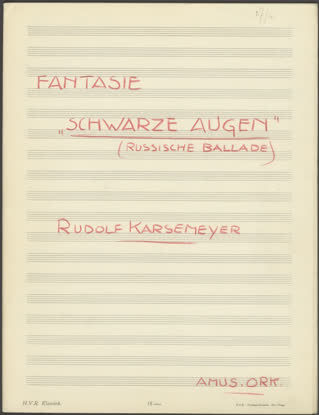 FANTASIE
„SCHWARZE AUGEN"
(RUSSISCHE BALLADE)
RUDOLF KARSEMEYER
AMUS. ORK.
H.V.R. Klassiek.